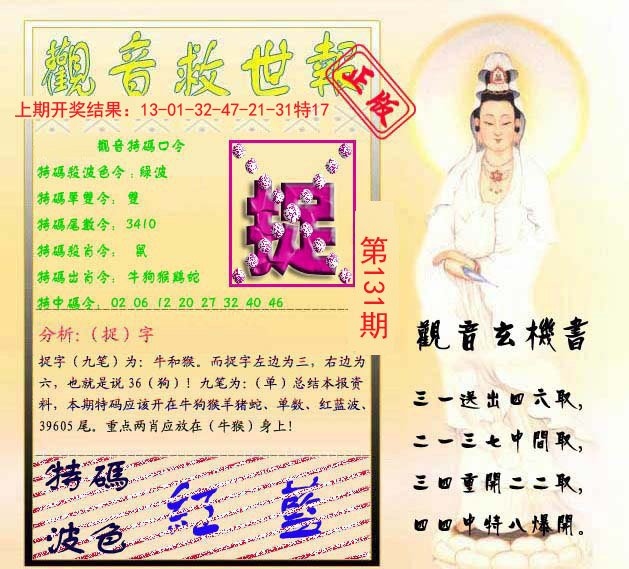 觀音救世報
正版
上期开奖结果：13-01-32-47-21-31特17
觀音特碼口令
特碼殺波色令：綠波
特碼單雙令：雙
特碼尾數令：3410
特碼殺肖令：鼠
特碼出肖令：牛狗猴鷄蛇
特中碼令：02 06 12 20 27 32 40 46
捉
第131期
分析:（捉）字
捉字（九笔）为：牛和猴。而捉字左边为三，右边为
六，也就是说 36（狗）！九笔为:（单）总结本报资
料，本期特码应该开在牛狗猴羊猪蛇、单数、红蓝波、
39605 尾。重点两肖应放在（牛猴）身上！
特碼
波色
紅 藍
觀音玄機書
三一送出四六取，
二一三七中間取，
三四重開二二取，
四四中特八爆開。